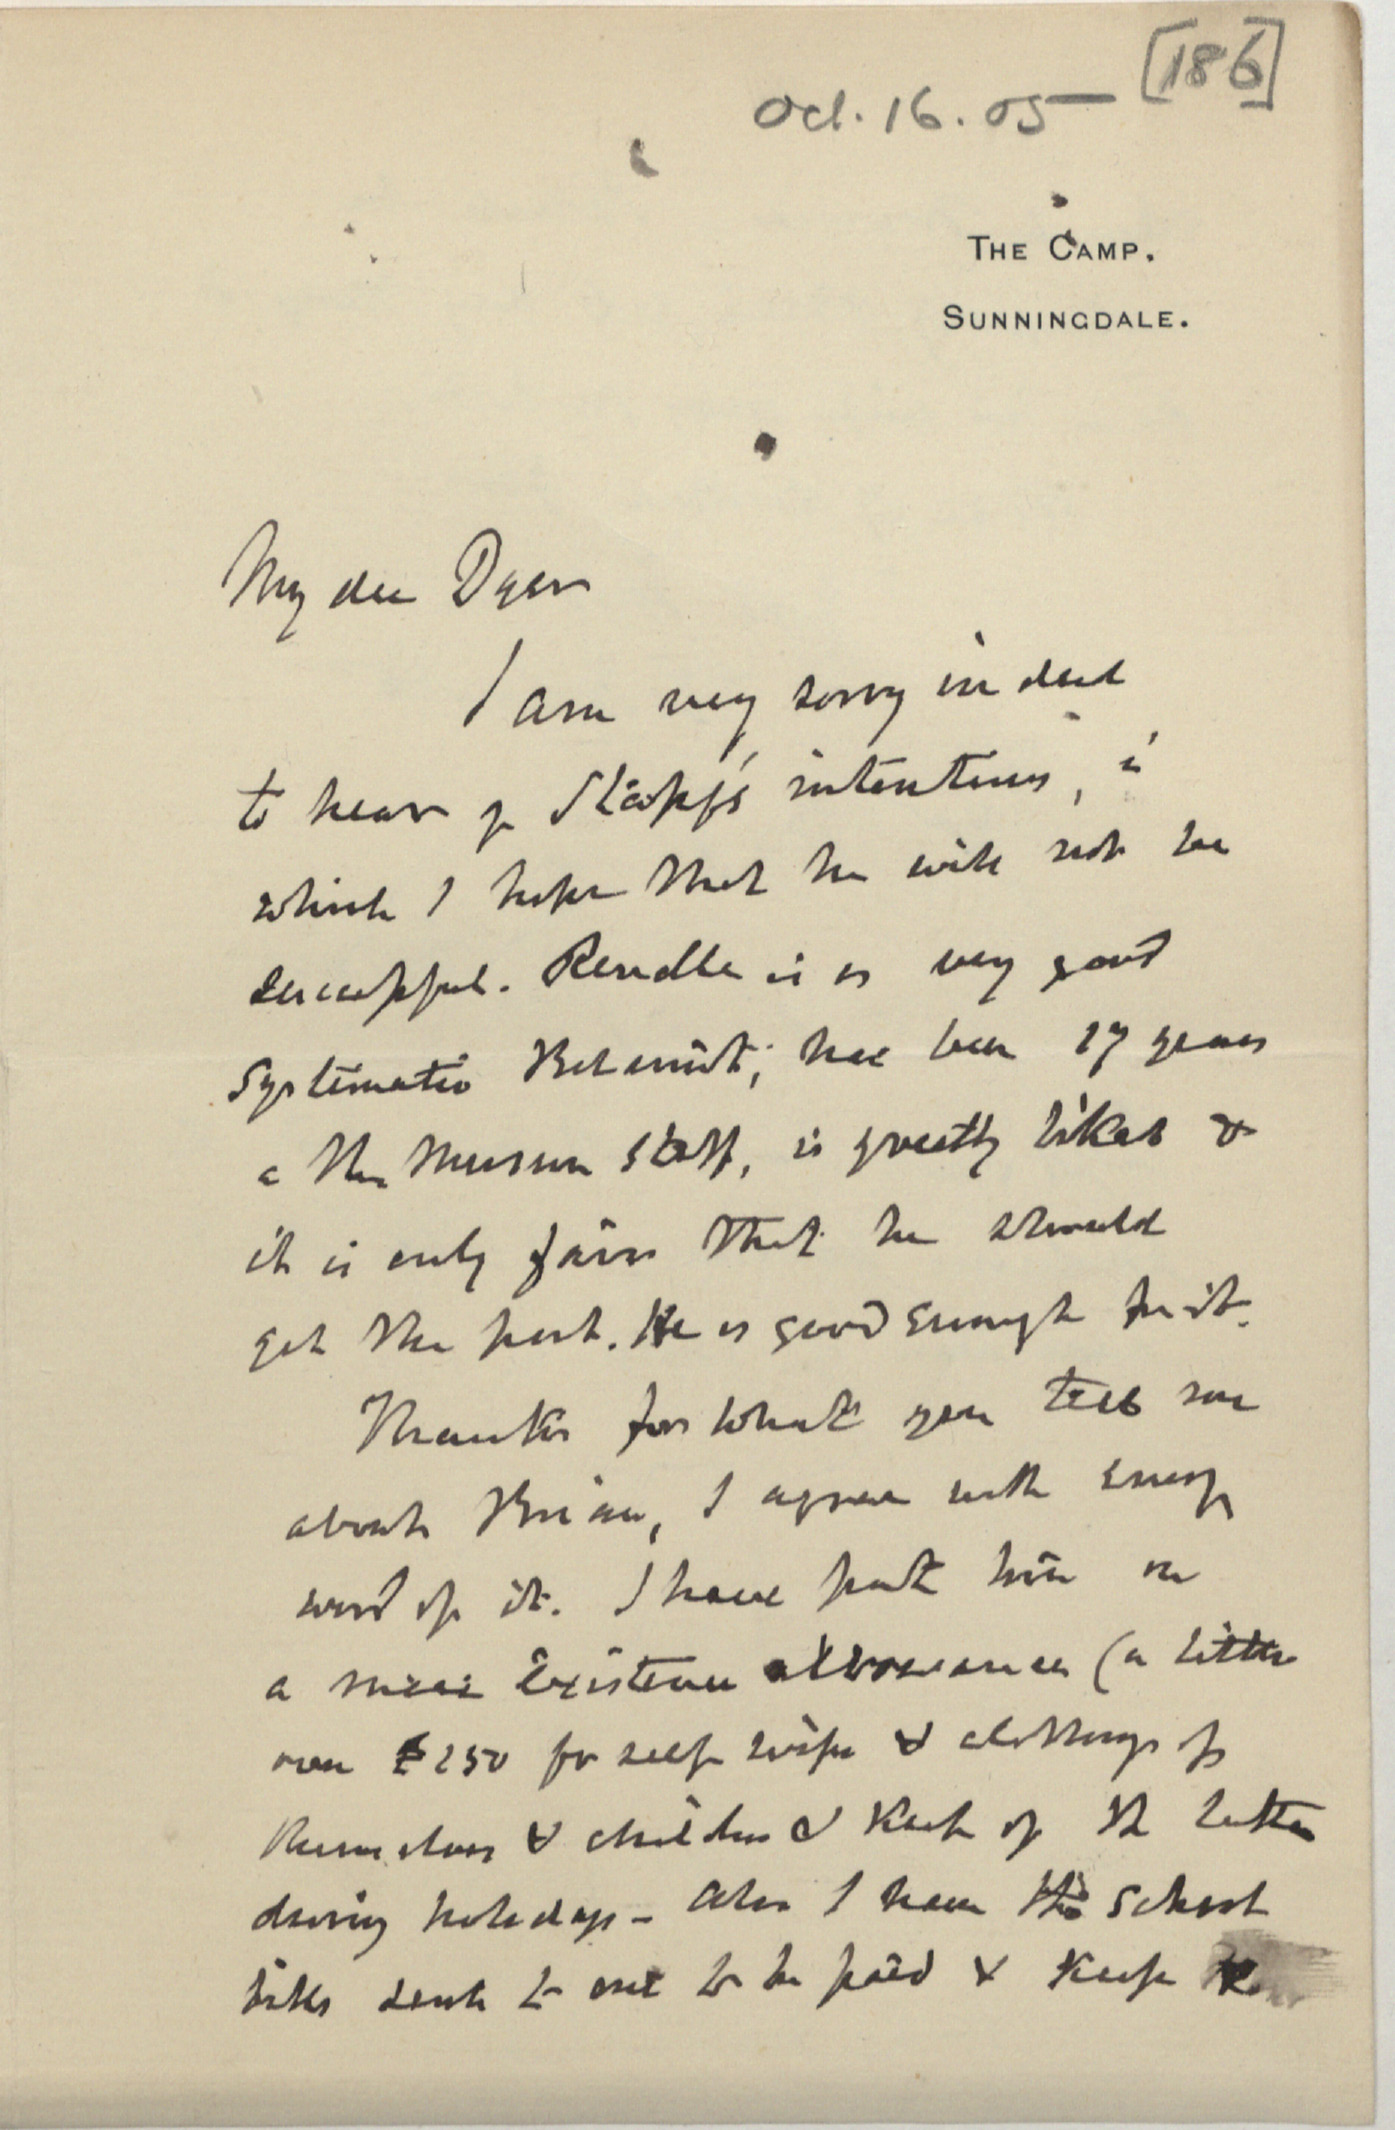 [186]
Oct. 16. 05
THE CAMP.
SUNNINGDALE.
My dear Dyer
I am very sorry indeed
to hear of Stapf's intentions, in
which I hope that he will not be
successful. Rendle is a very good
systematic Botanist; has been 17 years
on the Museum Staff, is greatly liked &
it is only fair that he should
get the post. He is good enough for it.
Thanks for what you tell me
about Brian, I agree with every
word of it. I have put him on
a mere existence allowance (a little
over £250 for self wife & clothing of
themselves & children & keep of the latter
during holidays - Also I have the School
bills sent to me to be paid & keep